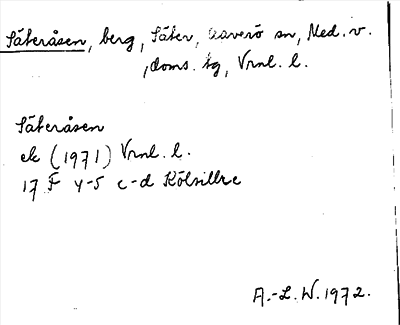 Säteråsen, berg, Säter, Haverö sn, Med. v.
doms. tg, Vrnl. l.
Säteråsen
ek (1971) Vrnl. l.
17 F 4-5 c-d Kölsillre
A.-L. W. 1972.